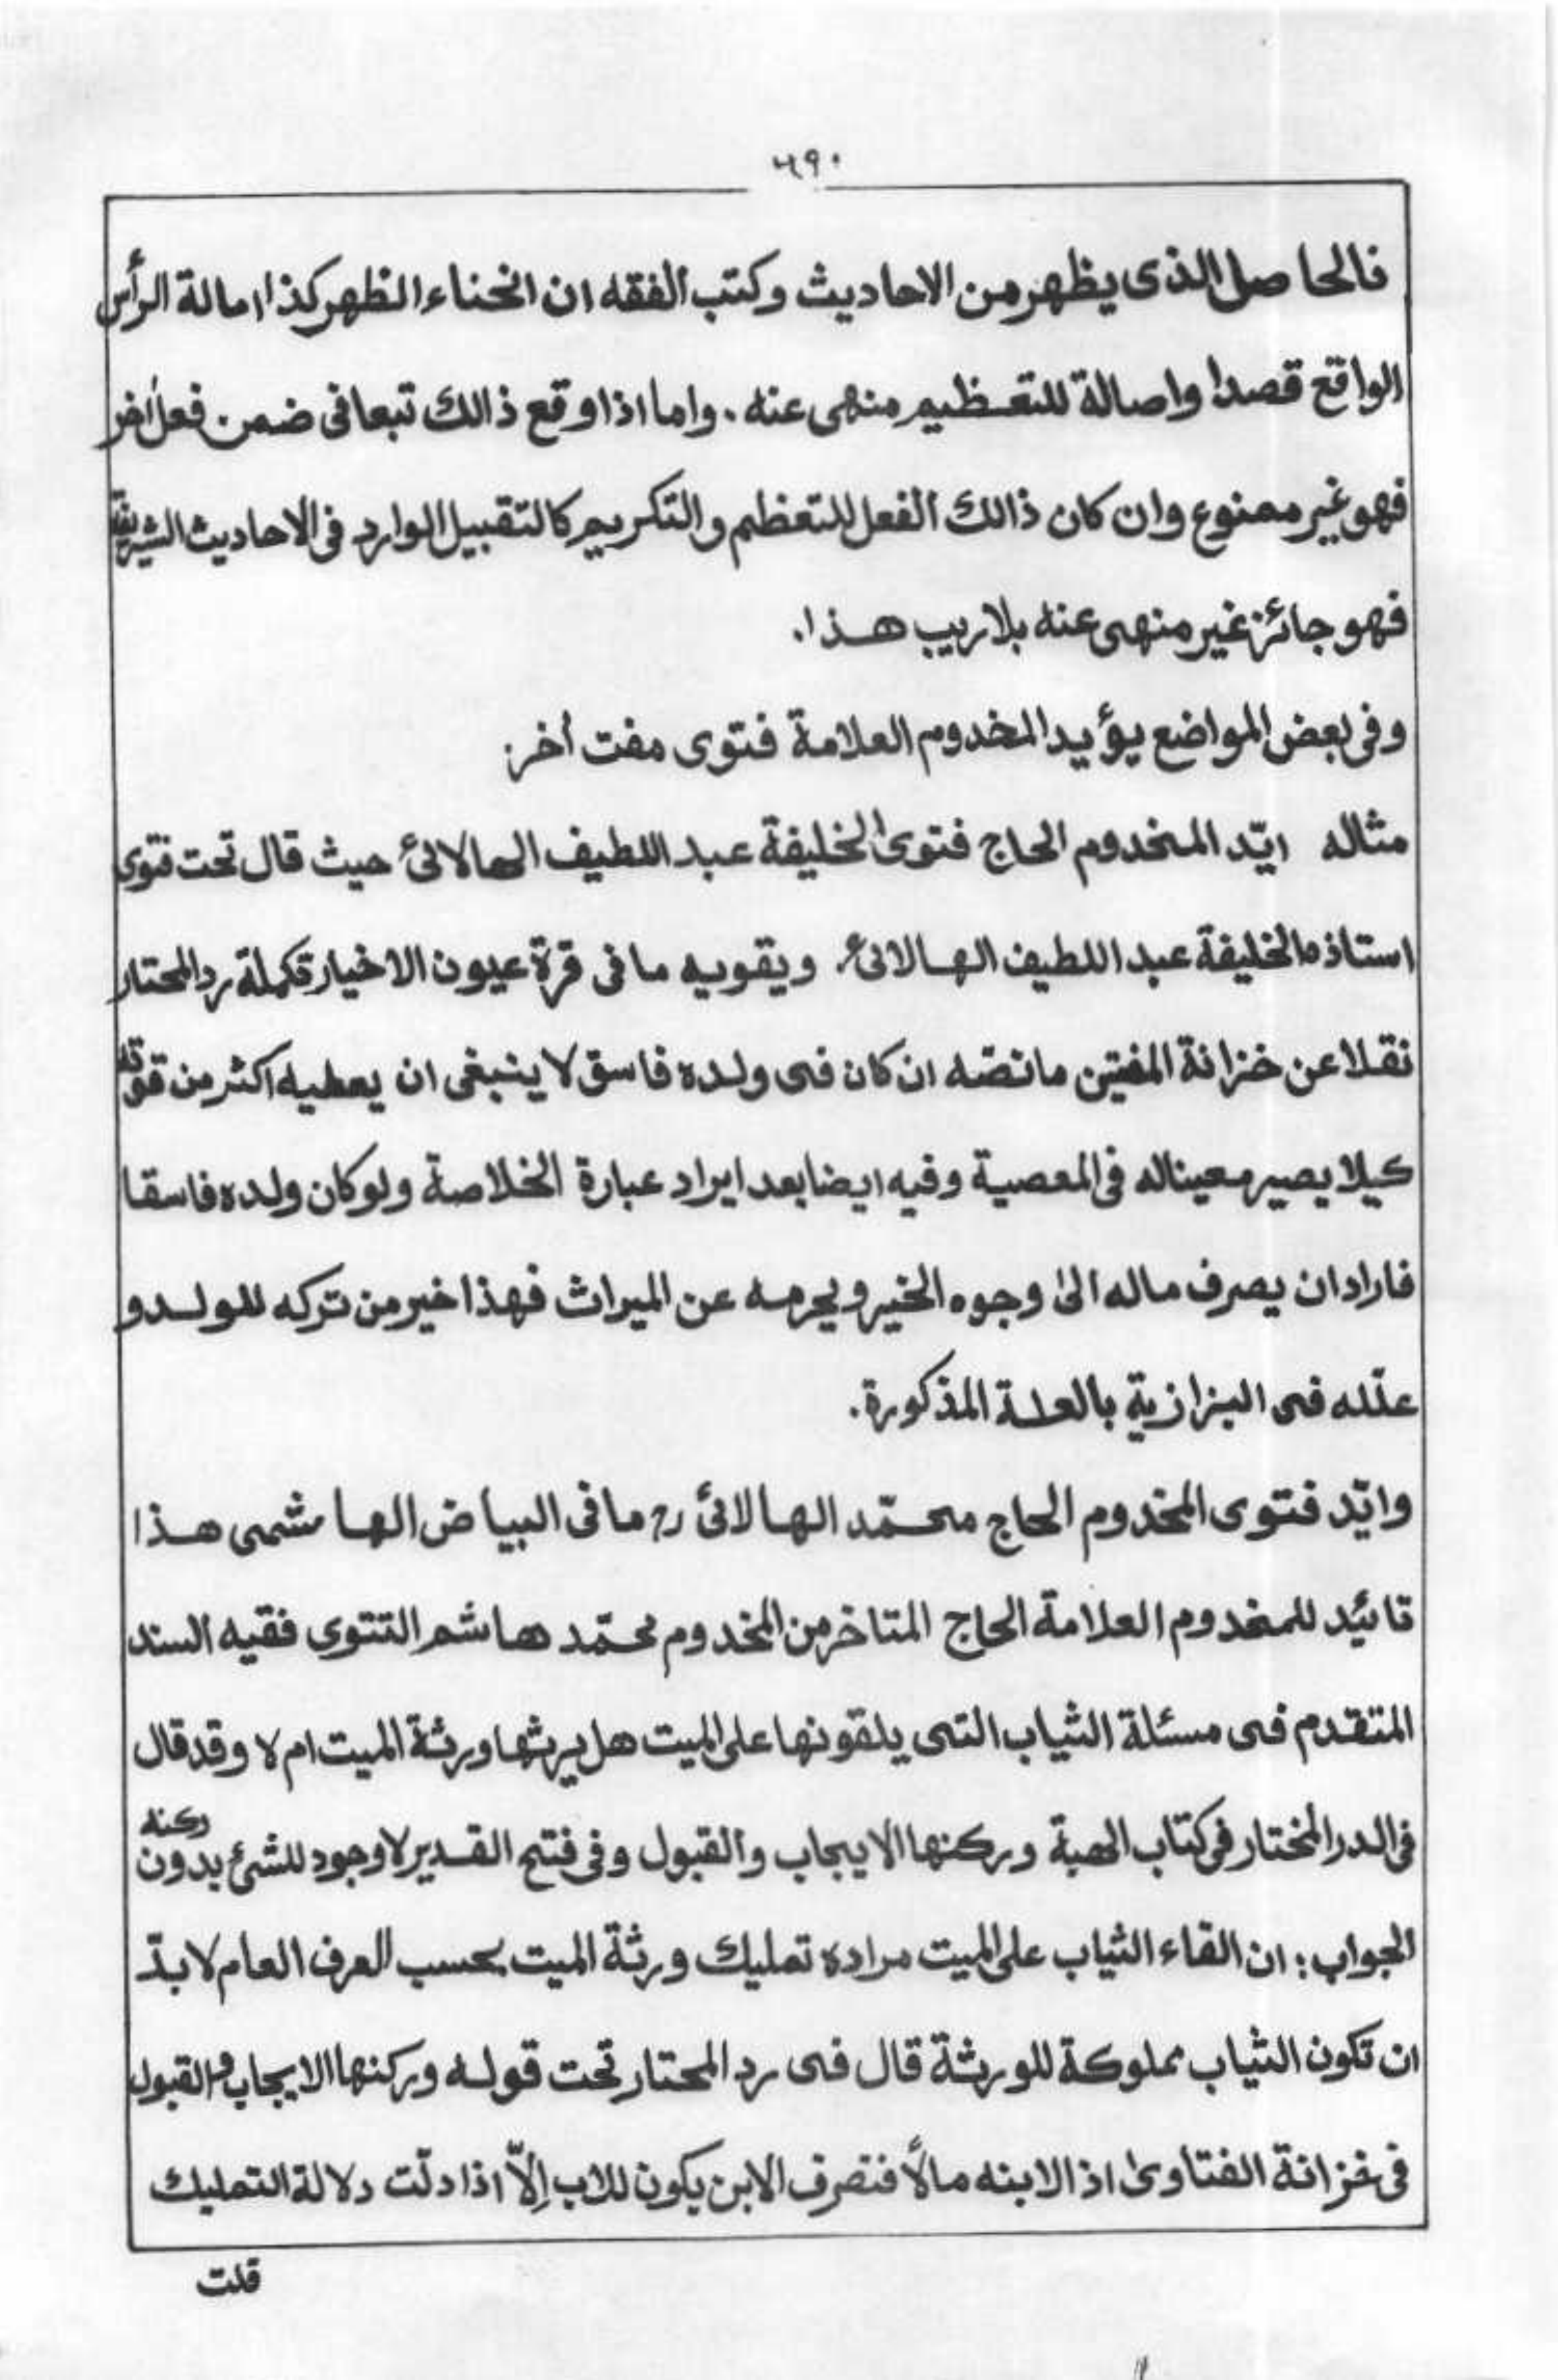 ٦٩٠
فالحاصل الذى يظهر من الاحاديث وكتب الفقه ان انحناء الظهر كذا امالة الرأس
الواقع قصدا واصالة للتعظيم منهى عنه . واما اذا وقع ذالك تبعا فى ضمن فعل اٰخر
فهو غير ممنوع وان كان ذالك الفعل للتعظيم والتكريم كالتقبيل الوارد فى الاحاديث الشريفة
فهو جائز غير منهى عنه بلا ريب هذا.
وفى بعض المواضع يؤيد المخدوم العلامة فتوى مفت أخر:
مثاله ايّد المخدوم الحاج فتوى الخليفة عبد اللطيف الهالائى حيث قال تحت فتوى
استاذه الخليفة عبد اللطيف الهالائى ويقويه ما فى قرة عيون الاخيار تكملة رد المحتار
نقلا عن خزانة المفتين ما نصّه ان كان فى ولده فاسق لا ينبغى ان يعطيه اكثر من قوته
كيلا يصير معينا له فى المعصية وفيه ايضا بعد ايراد عبارة الخلاصة ولو كان ولده فاسقا
فاراد ان يصرف ماله الىٰ وجوه الخير ويحرمه عن الميراث فهذا خير من تركه للولد و
علّله فى البزازية بالعلة المذكورة.
وايّد فتوى المخدوم الحاج محمّد الهالائى رح ما فى البياض الهاشمى هذا
تائيد للمخدوم العلامة الحاج المتاخر من المخدوم محمّد هاشم التتوى فقيه السند
المتقدم فى مسئلة الثياب التى يلقونها على الميت هل يرثها ورثة الميت ام لا وقد قال
فى الدر المختار فى كتاب الهبة وركنها الايجاب والقبول وفى فتح القدير لا وجود للشئ بدون ركنه
الجواب: ان القاء الثياب على الميت مراده تمليك ورثة الميت بحسب العرف العام لا بدّ
ان تكون الثياب مملوكة للورثة قال فى رد المحتار تحت قوله وركنها الايجاب والقبول
فى خزانة الفتاوىٰ اذا لابنه مالاً فتصرف الابن يكون للاب إلّا اذا دلّت دلالة التمليك
قلت